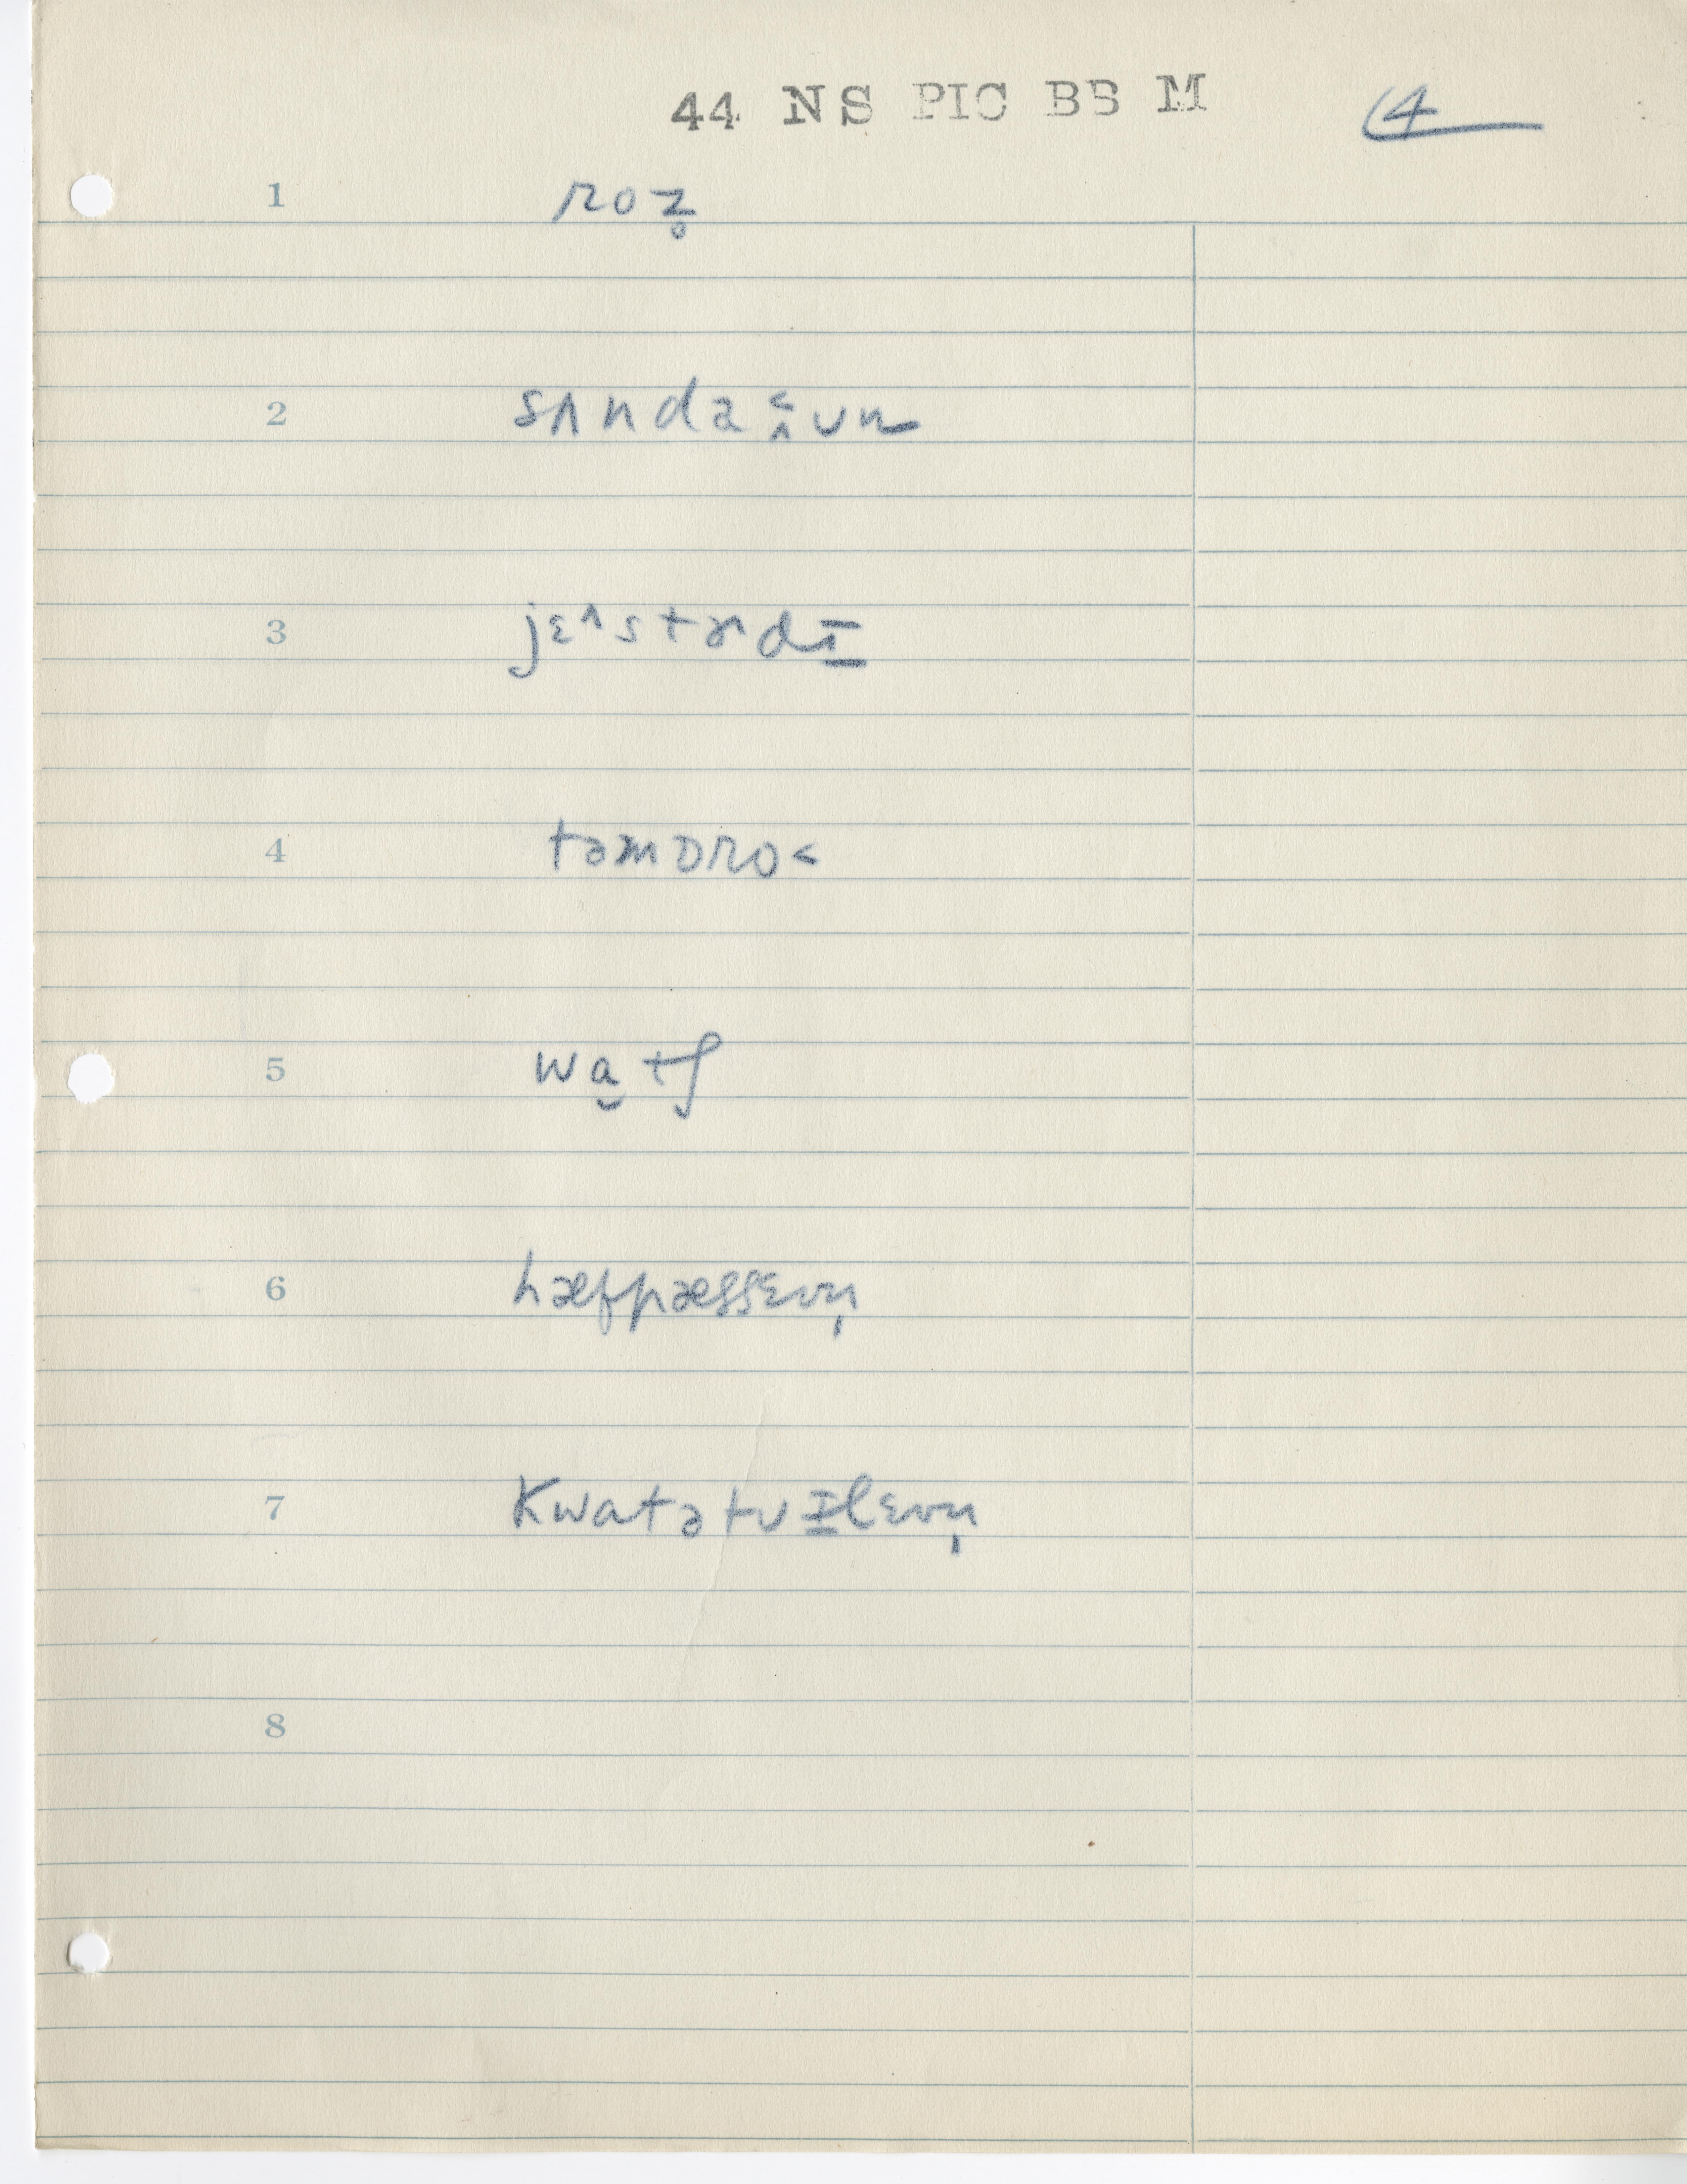 44 NS PIC BB M 4
1 roz̥
2 sʌndaɛ̭ʌun
3 jɛ^stɚdɪ̱
4 təmɒro<
5 wa̮tʃ
6 hæfpæssɛvn̩
7 kwatətʊɪ̱lɛvn̩
8